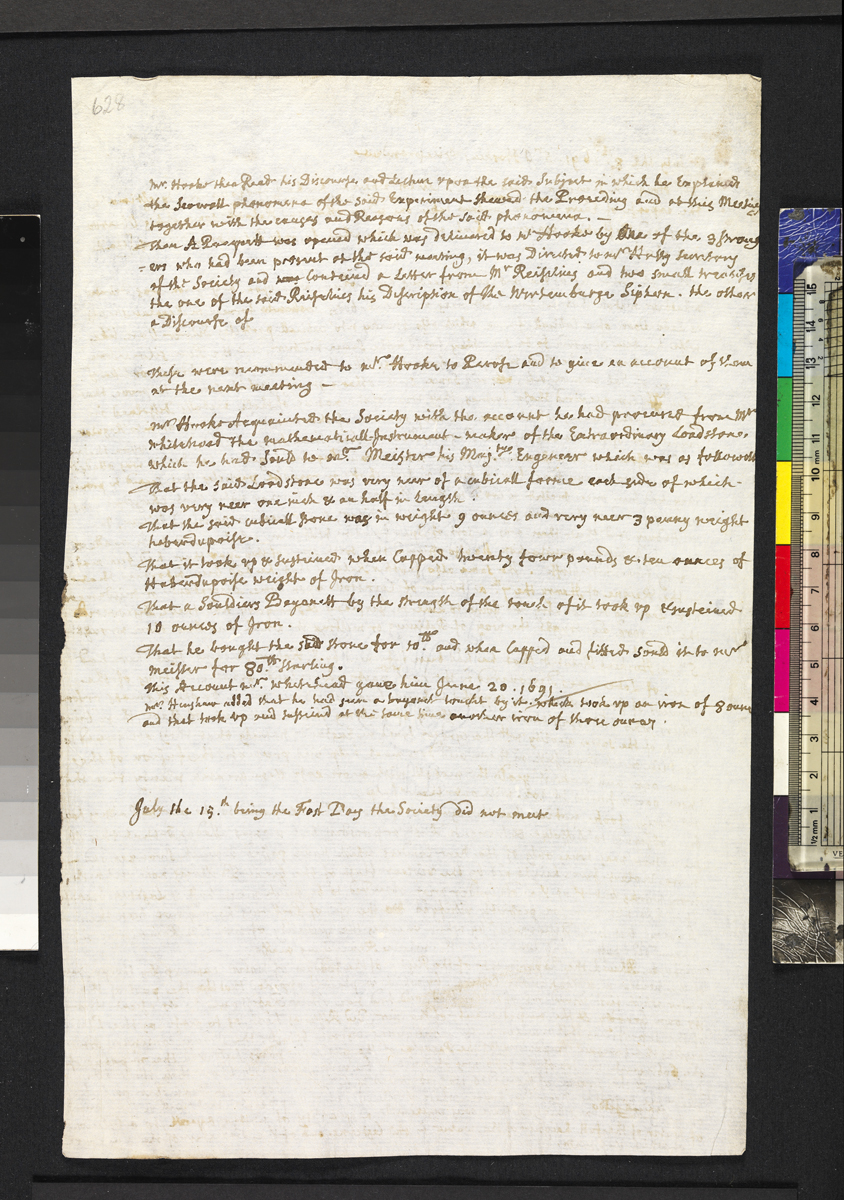 628
Mr. Hooke then Read his Discourse and Lecture upon the said Subject in which he Explained
the Severall phenomena of the said Experiment shewed the Preceding and at this Meeting
together with the causes and Reasons of the said phenomena. —
Then A Pacquett was opened which was delivered to Mr Hooke by one of the 3 strang
ers who had been present at the said meeting, it was Directed to mr. Hally secretery
of the Society and Conteined a Letter from Mr Reiselius and two small treatises
the one of the said Reiselius his Discription of the Wirtemburge Siphon. the other
a Discourse of
These were recommended to mr. Hooke to Peruse and to give an account of them
at the next meeting —
mr Hooke Acquainted the Society with the account he had procured from Mr
Whitehead the mathematicall-Instrument-maker of the Extraordinary Loadstone,
which he had sould to mr. Meister his Majties Engeneer which was as followeth
That the said Loadstone was very neer of a cubicall forme each side of which
was very neer one inch & an half in Length.
That the said cubicall stone was in weight 9 ounces and very neer 3 penny weight
haberdupoise.
That it took up & susteined when Capped twenty four pounds & ten ounces of
Haberdupoise weight of Iron.
That a Souldiers Bayonett by the strength of the touch of it took up & susteined
10 ounces of Iron.
That he bought the said stone for 10.lb and when Capped and fitted sould it to mr
meister for 80.lb starling.
This Account mr. Whitehead gave him June 20. 1691.
mr. Henshaw added that he had seen a bayonet touched by it which took up an iron of 8 ounces
and that took up and susteind at the same time another iron of three ounces.
July the 15.th being the Fast Day the Society did not meet